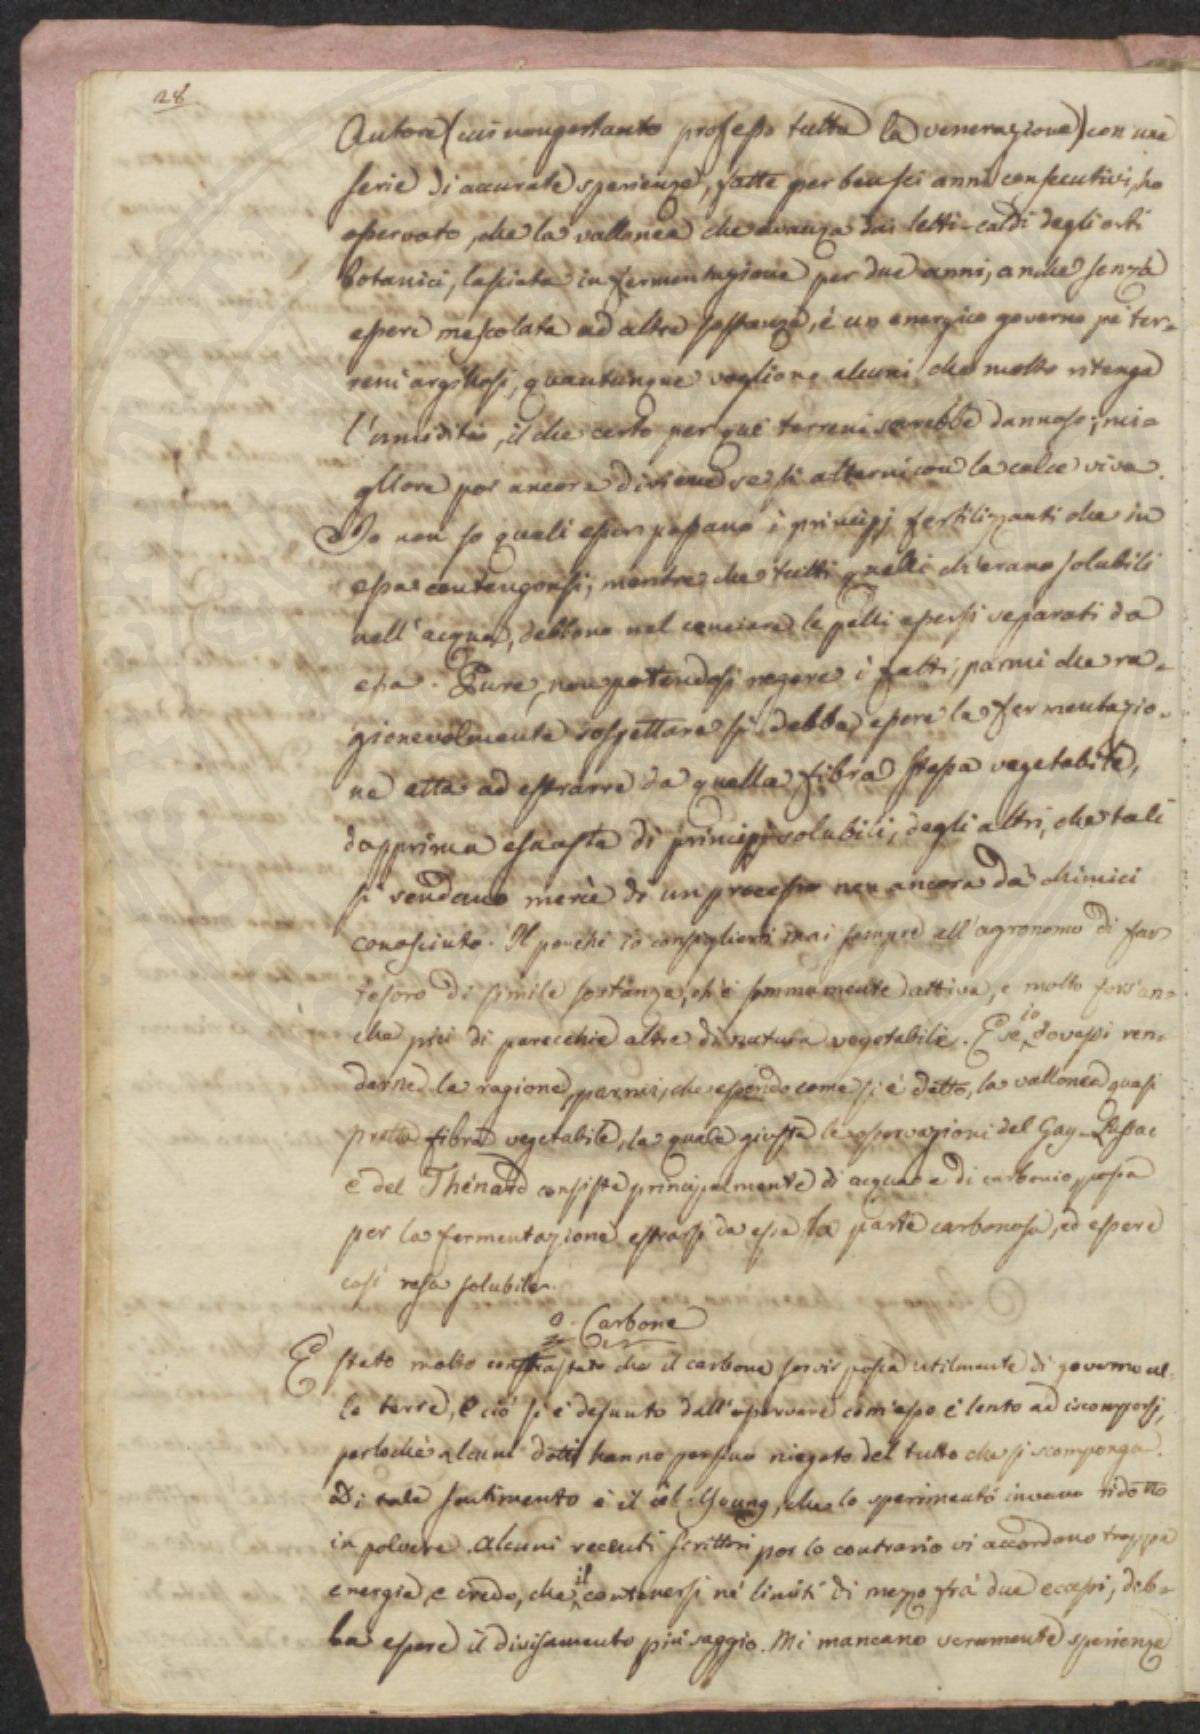 28
Autore (cui nonpertanto professo tutta la venerazione) con una
serie di accurate sperienze, fatte per ben sei anni consecutivi, ho
osservato, che la vallonea che avanza dai letti-caldi degli orti
botanici, lasciata in fermentazione per due anni, anche senza
essere mescolata ad altre sostanze, è un energico governo pe' ter-
reni argillosi, quantunque vogliono alcuni, che molto ritenga
l'umidità, il che certo per que' terreni sarebbe dannoso; mi-
gliore poi ancora diviene se si alterni con la calce viva.
Io non so quali esser possano i principj fertilizzanti che in
essa contengonsi, mentre che tutti quelli ch'erano solubili
nell'acqua, debbono nel conciare le pelli essersi separati da
essa. Pure, non potendosi negare i fatti, parmi che ra-
gionevolmente sospettare si debba essere la fermentazio-
ne atta ad estrarre da quella fibra stessa vegetabile,
dapprima esausta di principj solubili, degli altri, che tali
si rendano mercè di un processo non ancora da' chimici
conosciuto. Il perchè io consiglierò mai sempre all'agronomo di far
tesoro di simile sostanza, ch'è sommamente attiva, e molto fors'an-
che più di parecchie altre di natura vegetabile. E se io dovessi ren-
derne la ragione, parmi, che essendo come si è detto, la vallonea quasi
pretta fibra vegetabile, la quale giusta le osservazioni del Gay-Lussac
e del Thénard consiste principalmente di acqua e di carbonio, possa
per la fermentazione estrarsi da essa la parte carbonosa, ed essere
così resa solubile.
o. Carbone
È stato molto contrastato che il carbone servir possa utilmente di governo al-
le terre, e ciò si è desunto dall'osservare com'esso è lento ad iscomporsi,
perlochè alcuni dotti hanno persino niegato del tutto che si scomponga.
Di tale sentimento è il cel. Young, che lo sperimentò invano ridotto
in polvere. Alcuni recenti scrittori per lo contrario vi accordano troppa
energia, e credo, che il contenersi ne' limiti di mezzo fra' due eccessi, deb-
ba essere il divisamento più saggio. Mi mancano veramente sperienze